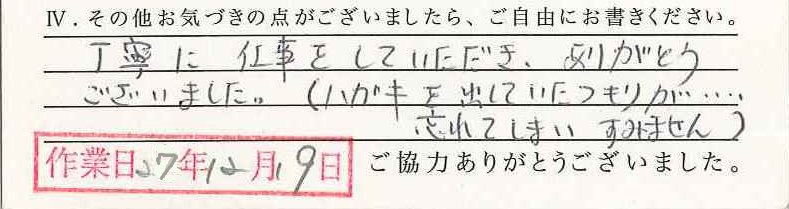 Ⅳ．その他お気づきの点がございましたら、ご自由にお書きください。
丁寧に 仕事をしていただき、ありがとう
ございました。（ハガキを出していたつもりが‥‥
忘れてしまい すみません）
作業日27年12月19日 ご協力ありがとうございました。